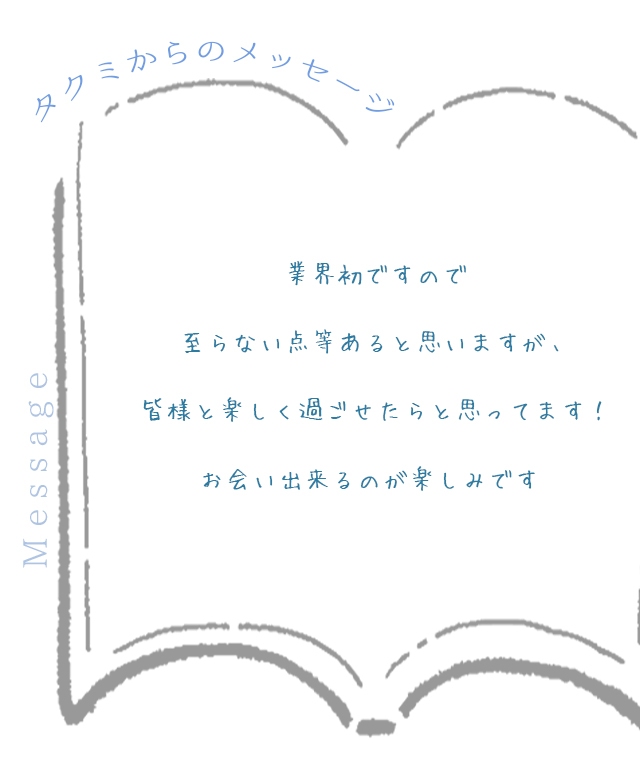 タクミからのメッセージ
業界初ですので
至らない点等あると思いますが、
皆様と楽しく過ごせたらと思ってます！
お会い出来るのが楽しみです
Message